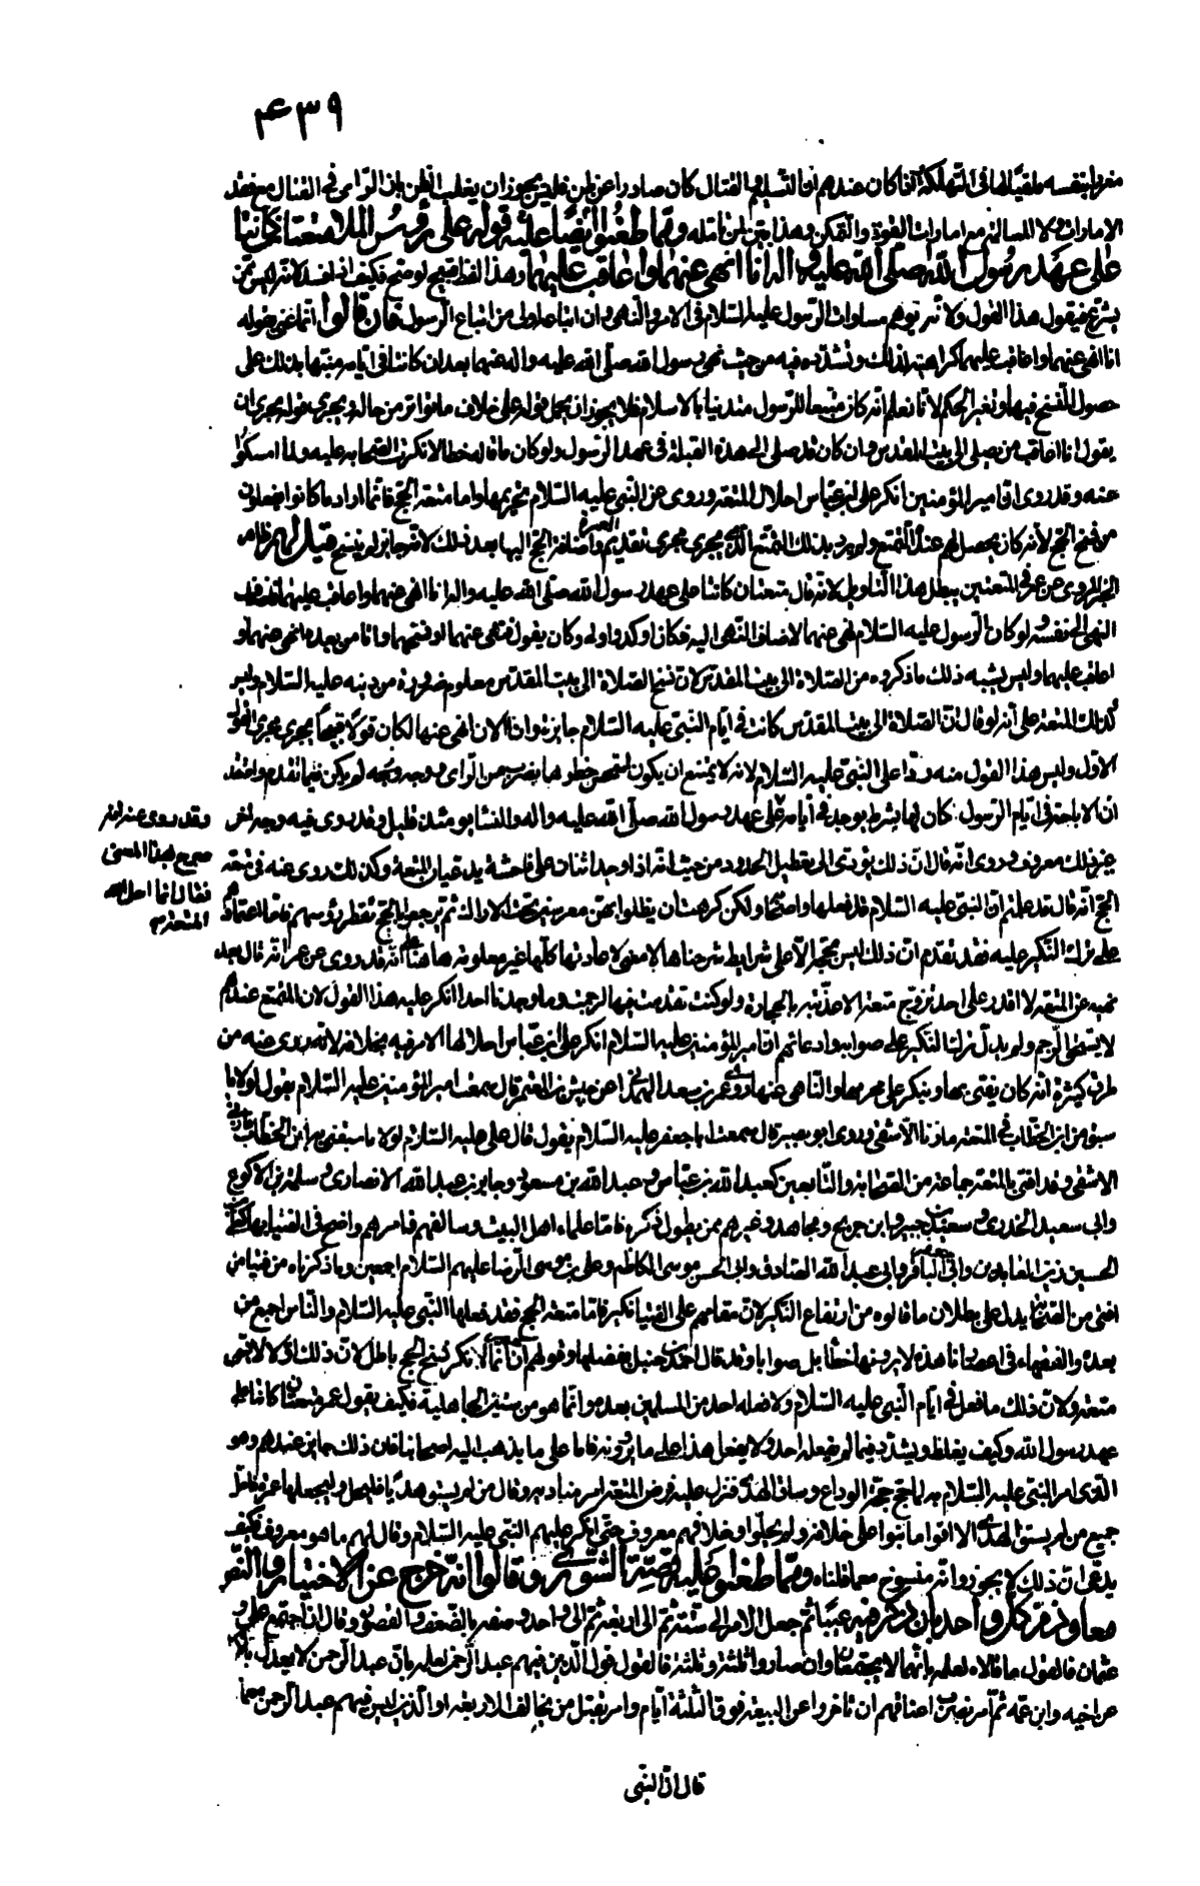 ٤٣٩
مغررا بنفسه ملقيا لها فى التهلكة انما كان عندهم ان التسليم والقتال كان صادرا عن ظن فليس يجوز ان يغلب الظن بان الراى فى القتال مع فقد
الامارات والمسالمة مع امارات القوة والتمكن وهذا بين لمن تامله ومما طعنوا ايضا عليه قوله على رؤس الملا متعتان كانتا
على عهد رسول الله صلى الله عليه واله انا انهى عنهما واعاقب عليهما وهذا اللفظ قبيح لو صح فكيف اذا فسد لانه ليس ممن
يشرع فيقول هذا القول ولانه يوهم مساوات الرسول عليه السلام فى الامر والنهى وان اتباعه اولى من اتباع الرسول فان قالوا انما عنى بقوله
انا انهى عنهما واعاقب عليهما كراهته لذلك وتشدده فيه من حيث نهى رسول الله صلى الله عليه واله عنهما بعد ان كانتا فى ايامه منبها بذلك على
حصول النسخ فيهما وتغير الحكم لانا نعلم انه كان متبعا للرسول متدينا بالاسلام فلا يجوز ان يحمل قوله على خلاف ما تواتر من حاله ويجرى قوله مجرى ان
يقول انا اعاقب من صلى الى بيت المقدس وان كان قد صلى الى هذه القبلة فى عهد الرسول ولو كان ما قاله خطا لانكرت الصحابة عليه ولما امسكوا
عنه وقد روى ان امير المؤمنين انكر على ابن عباس احلال المتعة وروى عن النبى عليه السلام تحريمها واما متعة الحج فانما اراد ما كانوا يفعلونه
من فسخ الحج لانه كان يحصل لهم عنده التمتع ولم يرد بذلك التمتع الذى يجرى مجرى تقديم العمرة واضافة الحج اليها بعد ذلك لانه جائز لم ينسخ قيل لهم ظاهر
الخبر المروى عن عمر فى المتعتين يبطل هذا التاويل لانه قال متعتان كانتا على عهد رسول الله صلى الله عليه واله انا انهى عنهما واعاقب عليهما فاضاف
النهى الى نفسه ولو كان الرسول عليه السلام نهى عنهما لاضاف النهى اليه فكان اوكد واولى وكان يقول فنهى عنهما او فسخهما وانا من بعده انهى عنهما و
اعاقب عليهما وليس يشبه ذلك ما ذكروه من الصلاة الى بيت المقدس لان نسخ الصلاة الى بيت المقدس معلوم ضرورة من دينه عليه السلام وليس
كذلك المتعة على انه لو قال ان الصلاة الى بيت المقدس كانت فى ايام النبى عليه السلام جايزة وانا الان انهى عنها لكان قولا قبيحا يجرى مجرى القول
الاول وليس هذا القول منه ردا على النبى عليه السلام لانه لا يمتنع ان يكون استحسن حظرها بضرب من الراى ووجه وجهه لم يكن فيما تقدم واعتقد
ان الاباحة فى ايام الرسول كان لها شرط يوجد فى ايامه على عهد رسول الله صلى الله عليه واله والنشا يومئذ قليل وقد روى فيه وجه اخر
وقد روى عنه خبر
صريح بهذا المعنى
فقال انما احل الله
المتعة
غير ذلك معروف وروى انه قال ان ذلك يؤدى الى تعطيل الحدود من حيث انه اذا وجد اثنان على فاحشة يدعيان المتعة وكذلك روى عنه فى متعة
الحج انه قال قد علمت ان النبى عليه السلام قد فعلها واصحابه ولكن كرهت ان يظلوا بهن معرسين تحت الاراك ثم يرجعون بالحج تقطر رؤسهم فاما اعتمادهم
على ترك النكير عليه فقد تقدم ان ذلك ليس بحجة الا على شرايط شرحناها لا معنى لاعادتها كلها غير معلومة هاهنا على انه قد روى عن عمر انه قال بعد
نهيه عن المتعة لا اقدر على احد تزوج متعة الا عذبته بالحجارة ولو كنت تقدمت فيها لرجمت وما وجدنا احدا انكر عليه هذا القول لان المتمتع عندهم
لا يستحق الرجم ولم يدل ترك النكير على صوابه وادعائهم ان امير المؤمنين عليه السلام انكر على ابن عباس احلالها الامر فيه بخلافه لانه روى عنه من
طرق كثيرة انه كان يفتى بها وينكر على محرمها والناهى عنها وروى عمر بن سعد الهمدانى عن حبيش بن المعتمر قال سمعت امير المؤمنين عليه السلام يقول لولا ما
سبق من ابن الخطاب فى المتعة ما زنا الا شقى وروى ابو بصير قال سمعت ابا جعفر عليه السلام يقول قال على عليه السلام لولا ما سبقنى به ابن الخطاب ما زنى
الا شقى وقد افتى بالمتعة جماعة من الصحابة والتابعين كعبد الله بن عباس وعبد الله بن مسعود وجابر بن عبد الله الانصارى وسلمة بن الاكوع
وابى سعيد الخدرى وسعيد بن جبير وابن جريج ومجاهد وغيرهم ممن يطول ذكره فاما علماء اهل البيت وسالفهم فامرهم واضح فى الفتيا بها كعلى بن
الحسين زين العابدين وابى جعفر الباقر وابى عبد الله الصادق وابى الحسن موسى الكاظم وعلى بن موسى الرضا عليهم السلام اجمعين وما ذكرناه من فتيا من
افتى من الصحابة يدل على بطلان ما قالوه من ارتفاع النكير لان مقامهم على الفتيا نكير فاما متعة الحج فقد فعلها النبى عليه السلام والناس اجمع من
بعده والفقهاء فى اعصارنا هذه لا يرونها خطا بل صوابا وقد قال احمد بن حنبل بفضلها وقولهم ان انما انكر فسخ الحج باطل لان ذلك اولا لا يسمى
متعة ولان ذلك ما فعل فى ايام النبى عليه السلام ولا فعله احد من المسلمين بعده وانما هو من سنن الجاهلية فكيف يقول عمر متعتان كانتا على
عهد رسول الله وكيف يغلظ ويشدد فيما لم يفعله احد ولا يفعل هذا على ما يرونه فاما على ما يذهب اليه اصحابنا فان ذلك جائز عندهم وهو
الذى امر النبى عليه السلام به لما حج حجة الوداع وساق الهدى فنزل عليه فرض المتعة امر مناديه وقال من لم يسق هديا فليحل وليجعلها عمرة فاحل
جميع من لم يسق الهدى الا اقواما بنوا على خلافه ولم يحلوا وخلافهم معروف حتى انكر عليهم النبى عليه السلام وقال لهم ما هو معروف فكيف
يدعى ان ذلك لا يجوز وانه منسوخ مع ما قلناه ومما طعنوا عليه قصة الشورى وقالوا انه خرج عن الاختيار والنص
معا وذم كل واحد بان ذكر فيه عيبا ثم جعل الامر الى ستة ثم الى اربعة ثم الى واحد وصفه بالضعف والقصور وقال ان اجتمع على و
عثمان فالقول ما قالاه لعلمه بانهما لا يجتمعان وان صاروا ثلثة وثلثة فالقول قول الذين فيهم عبد الرحمن لعلمه بان عبد الرحمن لا يعدل بالامر
عن اخيه وابن عمه ثم امر بضرب اعناقهم ان تاخروا عن البيعة فوق الثلثة ايام وامر بقتل من يخالف الاربعة او الذين ليس فيهم عبد الرحمن معما
قال ان النبى